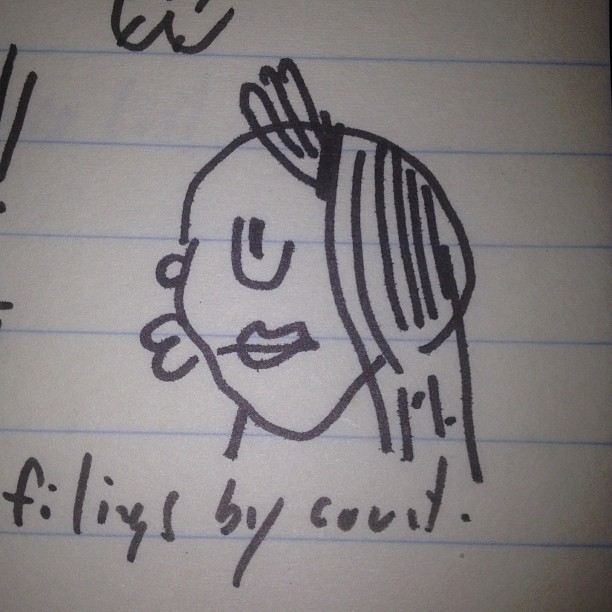 filings by court.